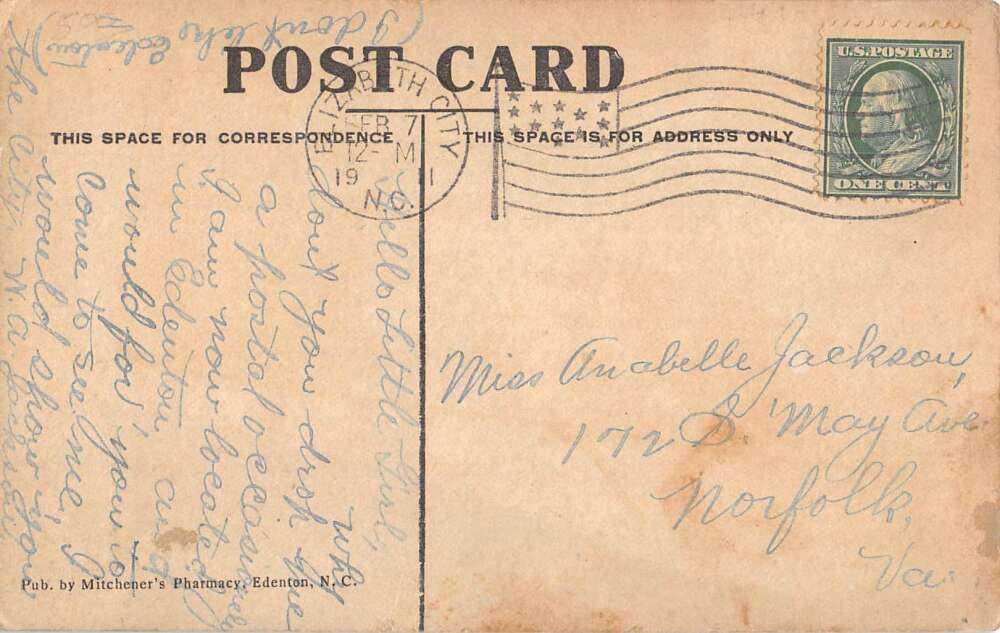 POST CARD
THIS SPACE FOR CORRESPONDENCE
THIS SPACE IS FOR ADDRESS ONLY
ELIZABETH CITY
FEB 7
12- M
19 11
N.C.
U.S. POSTAGE
ONE CENT
Hello Little Girl,
Why
dont you drop me
a postal occasionely
I am now located
in Edenton, and
would for you to
come to see me, I
would show you
the City. W. A. Jackson
(I dont like
Edenton)
Miss Anabelle Jackson,
172 S. May Ave.
Norfolk,
Va.
Pub. by Mitchener's Pharmacy, Edenton, N. C.